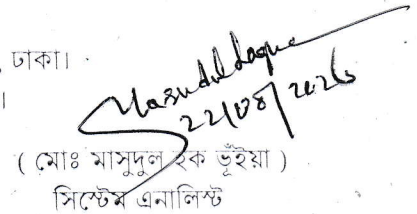 , ঢাকা।
।
Masudul Haque
22/08/2026
( মোঃ মাসুদুল হক ভূঁইয়া )
সিস্টেম এনালিস্ট